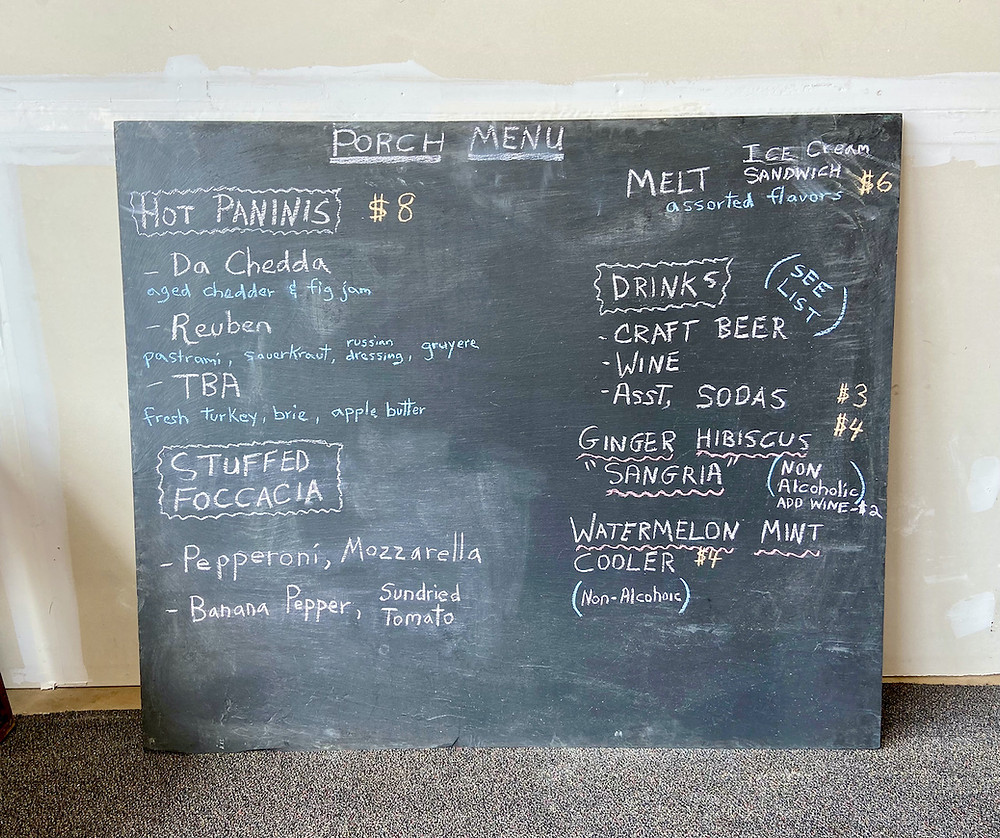 PORCH MENU
HOT PANINIS $8
- Da Chedda
aged chedder & fig jam
- Reuben
pastrami, sauerkraut, russian dressing, gruyere
- TBA
fresh turkey, brie, apple butter
STUFFED
FOCCACIA
- Pepperoni, Mozzarella
- Banana Pepper, Sundried Tomato
MELT ICE Cream SANDWICH $6
assorted flavors
DRINKS (SEE LIST)
- CRAFT BEER
- WINE
- ASST, SODAS $3
$4
GINGER HIBISCUS
"SANGRIA" (NON Alcoholic)
ADD WINE-$2
WATERMELON MINT
COOLER $4
(Non-Alcohoic)